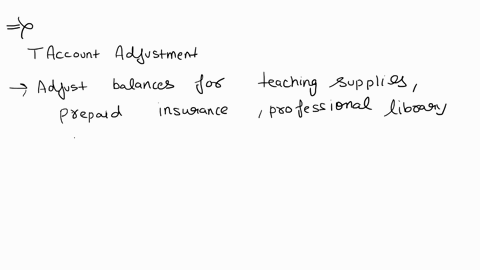 ⇒
T Account Adjustment
→ Adjust balances for teaching supplies,
prepaid insurance, professional library